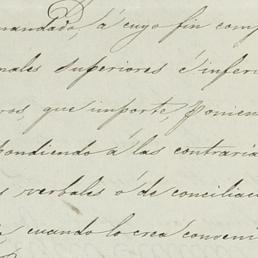 mandado, á cuyo fin comp
nales superiores é inferi
ros, que importe, ponien
pondiendo á las contraria
s verbales ó de conciliac
cuando lo crea conveni